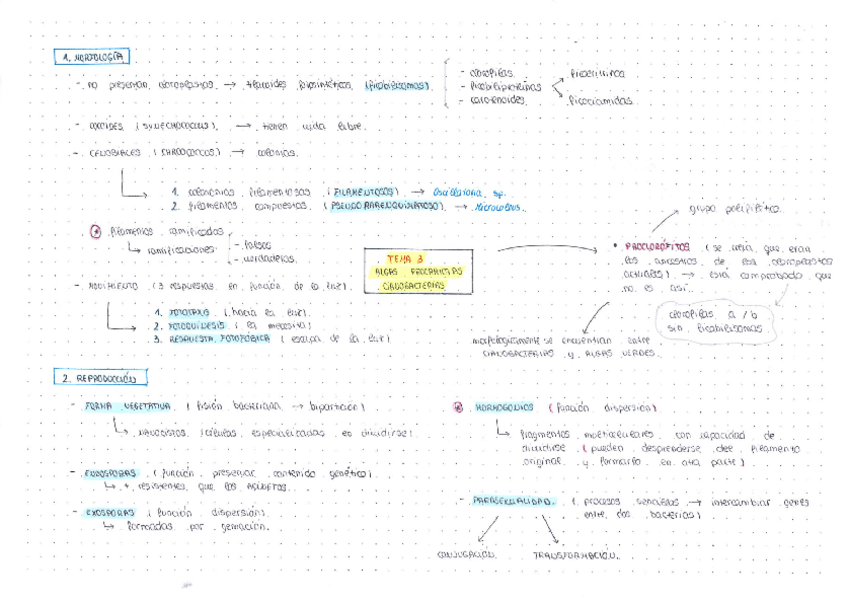 1. MORFOLOGÍA
- no presentan cloroplastos → tilacoides fotosintéticos (ficobilisomas)
- clorofilas
- ficobiliproteínas
- carotenoides
ficoeritrina
ficocianidas
- COCOIDES (SYNECHOCOCCUS) → tienen vida libre.
- CENOBIALES (CHROOCOCCUS) → colonias.
1. colonias filamentosas (FILAMENTOSOS) → Oscillatoria sp.
2. filamentos compuestos (PSEUDOPARENQUIMATOSO) → Microcoleus.
filamentos ramificados
ramificaciones
- falsas
- verdaderas
- MOVIMIENTO (3 respuestas en función de la luz).
1. FOTOTAXIS (hacia la luz).
2. FOTOQUINESIS (la necesita)
3. RESPUESTA FOTOFÓBICA (escapa de la luz)
TEMA 3
ALGAS PROCARIOTAS
CIANOBACTERIAS
grupo polifilético
• PROCLOROFITOS (se creía que eran
los ancestros de los cloroplastos
actuales) → está comprobado que
no es así.
clorofilas a/b
sin ficobilisomas
morfológicamente se encuentran entre
CIANOBACTERIAS y ALGAS VERDES.
2. REPRODUCCIÓN
- FORMA VEGETATIVA (fisión bacteriana → bipartición)
células especializadas en dividirse)
- ENDOSPORAS (función preservar contenido genético).
+ resistentes que los
- EXOSPORAS (función dispersión)
formadas por gemación.
HORMOGONIOS (función dispersión)
fragmentos multicelulares con capacidad de
dividirse (pueden desprenderse del filamento
original y formarlo en otra parte)
- PARASEXUALIDAD (procesos sencillos → intercambiar genes
entre dos bacterias)
CONJUGACIÓN
TRANSFORMACIÓN